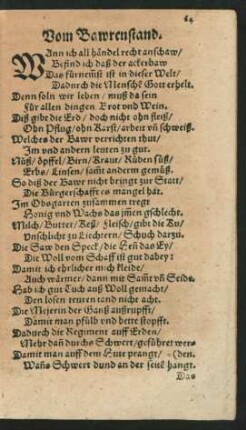 64
Vom Bawrenstand.
Wann ich all händel recht anschaw/
Befind ich daß der ackerbaw
Das fürnemst ist in dieser Welt/
Dadurch die Menschē Gott erhelt.
Denn soln wir leben / muß da sein
Für allen dingen Brot vnd Wein.
Diß gibt die Erd / doch nicht ohn fleiß/
Ohn Pflug/ ohn Karst/ arbeit vñ schweiß.
Welches der Bawr verrichten thut/
Im vnd andern leuten zu gut.
Nüß/ öpffel/ Birn/ Kraut/ Rüben süß/
Erbs/ Linsen/ samt anderm gemüß.
So diß der Bawr nicht bringt zur Statt/
Die Bürgerschafft es mangel hat.
Im Obsgarten zusammen tregt
Honig vnd Wachs das jmen gschlecht.
Milch/ Butter/ Keß/ Fleisch/ gibt die Ku/
Vnschlicht zu Liechtern/ Schuch darzu.
Die Saw den Speck/ die Heñ das Ey/
Die Woll vom Schaff gibt es dabey:
Damit ich ehrlicher mich kleide/
Auch wärmer/ dann mit Sam̃t vñ Seide.
Hab ich gut Tuch auß Woll gemacht/
Den losen teuten tand nicht acht.
Die Mejerin der Ganß außrupfft/
Damit man pfülb vnd bette stopfft.
Dadurch die Regiment auff Erden/
Mehr dañ durchs Schwert/ geführet wer-
Damit man auff dem Hute prangt/ (den.
Wañs Schwert dund an der seite hangt.
Das